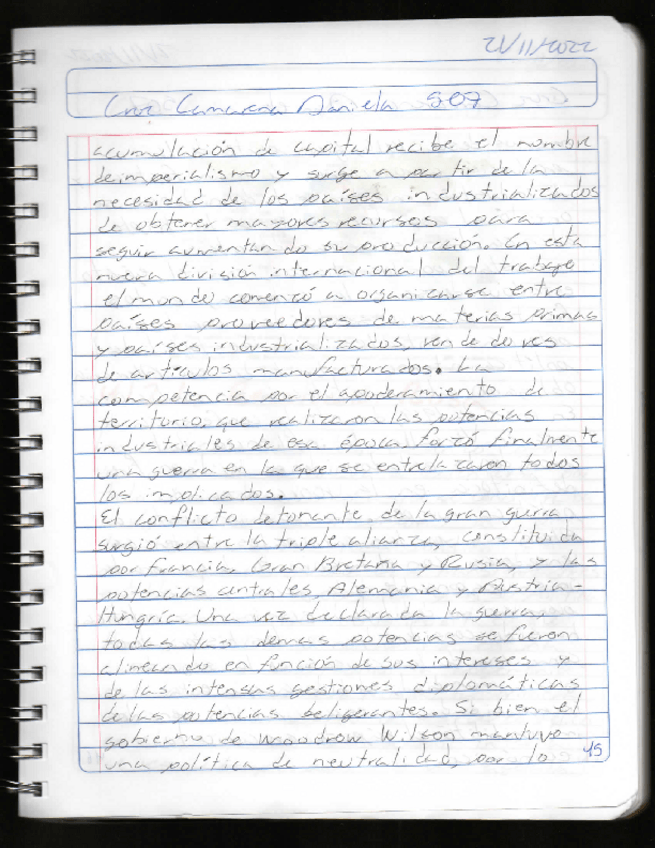 21/11/2022
Cruz Camarena Daniela 507
acumulación de capital recibe el nombre
de imperialismo y surge a partir de la
necesidad de los países industrializados
de obtener mayores recursos para
seguir aumentando su producción. En esta
nueva división internacional del trabajo
el mundo comenzó a organizarse entre
países proveedores de materias primas
y países industrializados, vendedores
de artículos manufacturados. La
competencia por el apoderamiento de
territorio, que realizaron las potencias
industriales de esa época, forzó finalmente
una guerra en la que se entrelazaron todos
los implicados.
El conflicto detonante, de la gran guerra
surgió entre la triple alianza, constituida
por francia, Gran Bretaña y Rusia, y las
potencias centrales, Alemania y Austria-
Hungría. Una vez declarada la guerra,
todas las demas potencias se fueron
alineando en función de sus intereses y
de las intensas gestiones diplomáticas
de las potencias beligerantes. Si bien el
gobierno de Woodrow Wilson mantuvo
una política de neutralidad, por lo
15